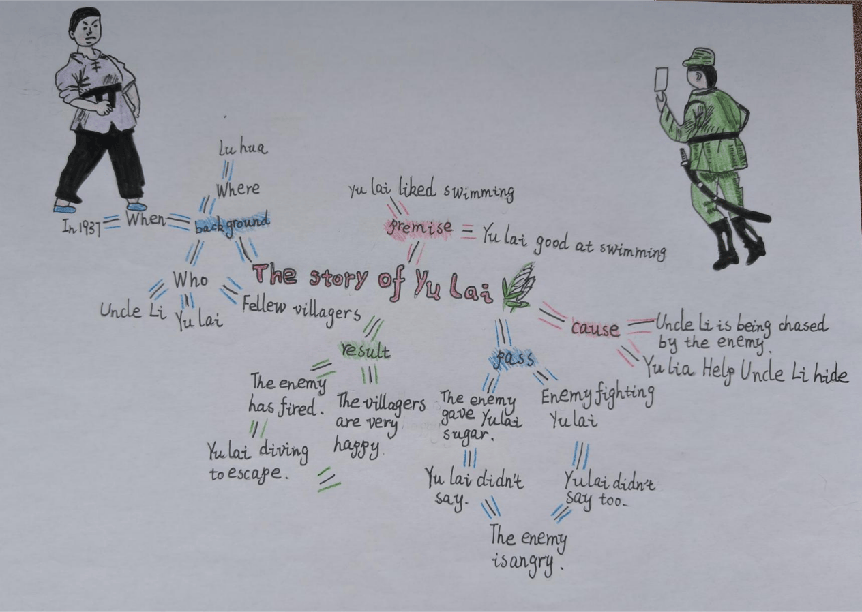 Lu hua
Where
In 1937
When
background
Who
Uncle Li
Yu lai
Fellew villagers
yu lai liked swimming
premise
Yu lai good at swimming
The story of Yu Lai
cause
Uncle Li is being chased
by the enemy.
Yu Lia Help Uncle Li hide
result
The enemy
has fired.
Yu lai diving
to escape.
The villagers
are very
happy.
pass
The enemy
gave Yulai
sugar.
Yu lai didn't
say.
Enemy fighting
Yu lai
Yu lai didn't
say too.
The enemy
is angry.